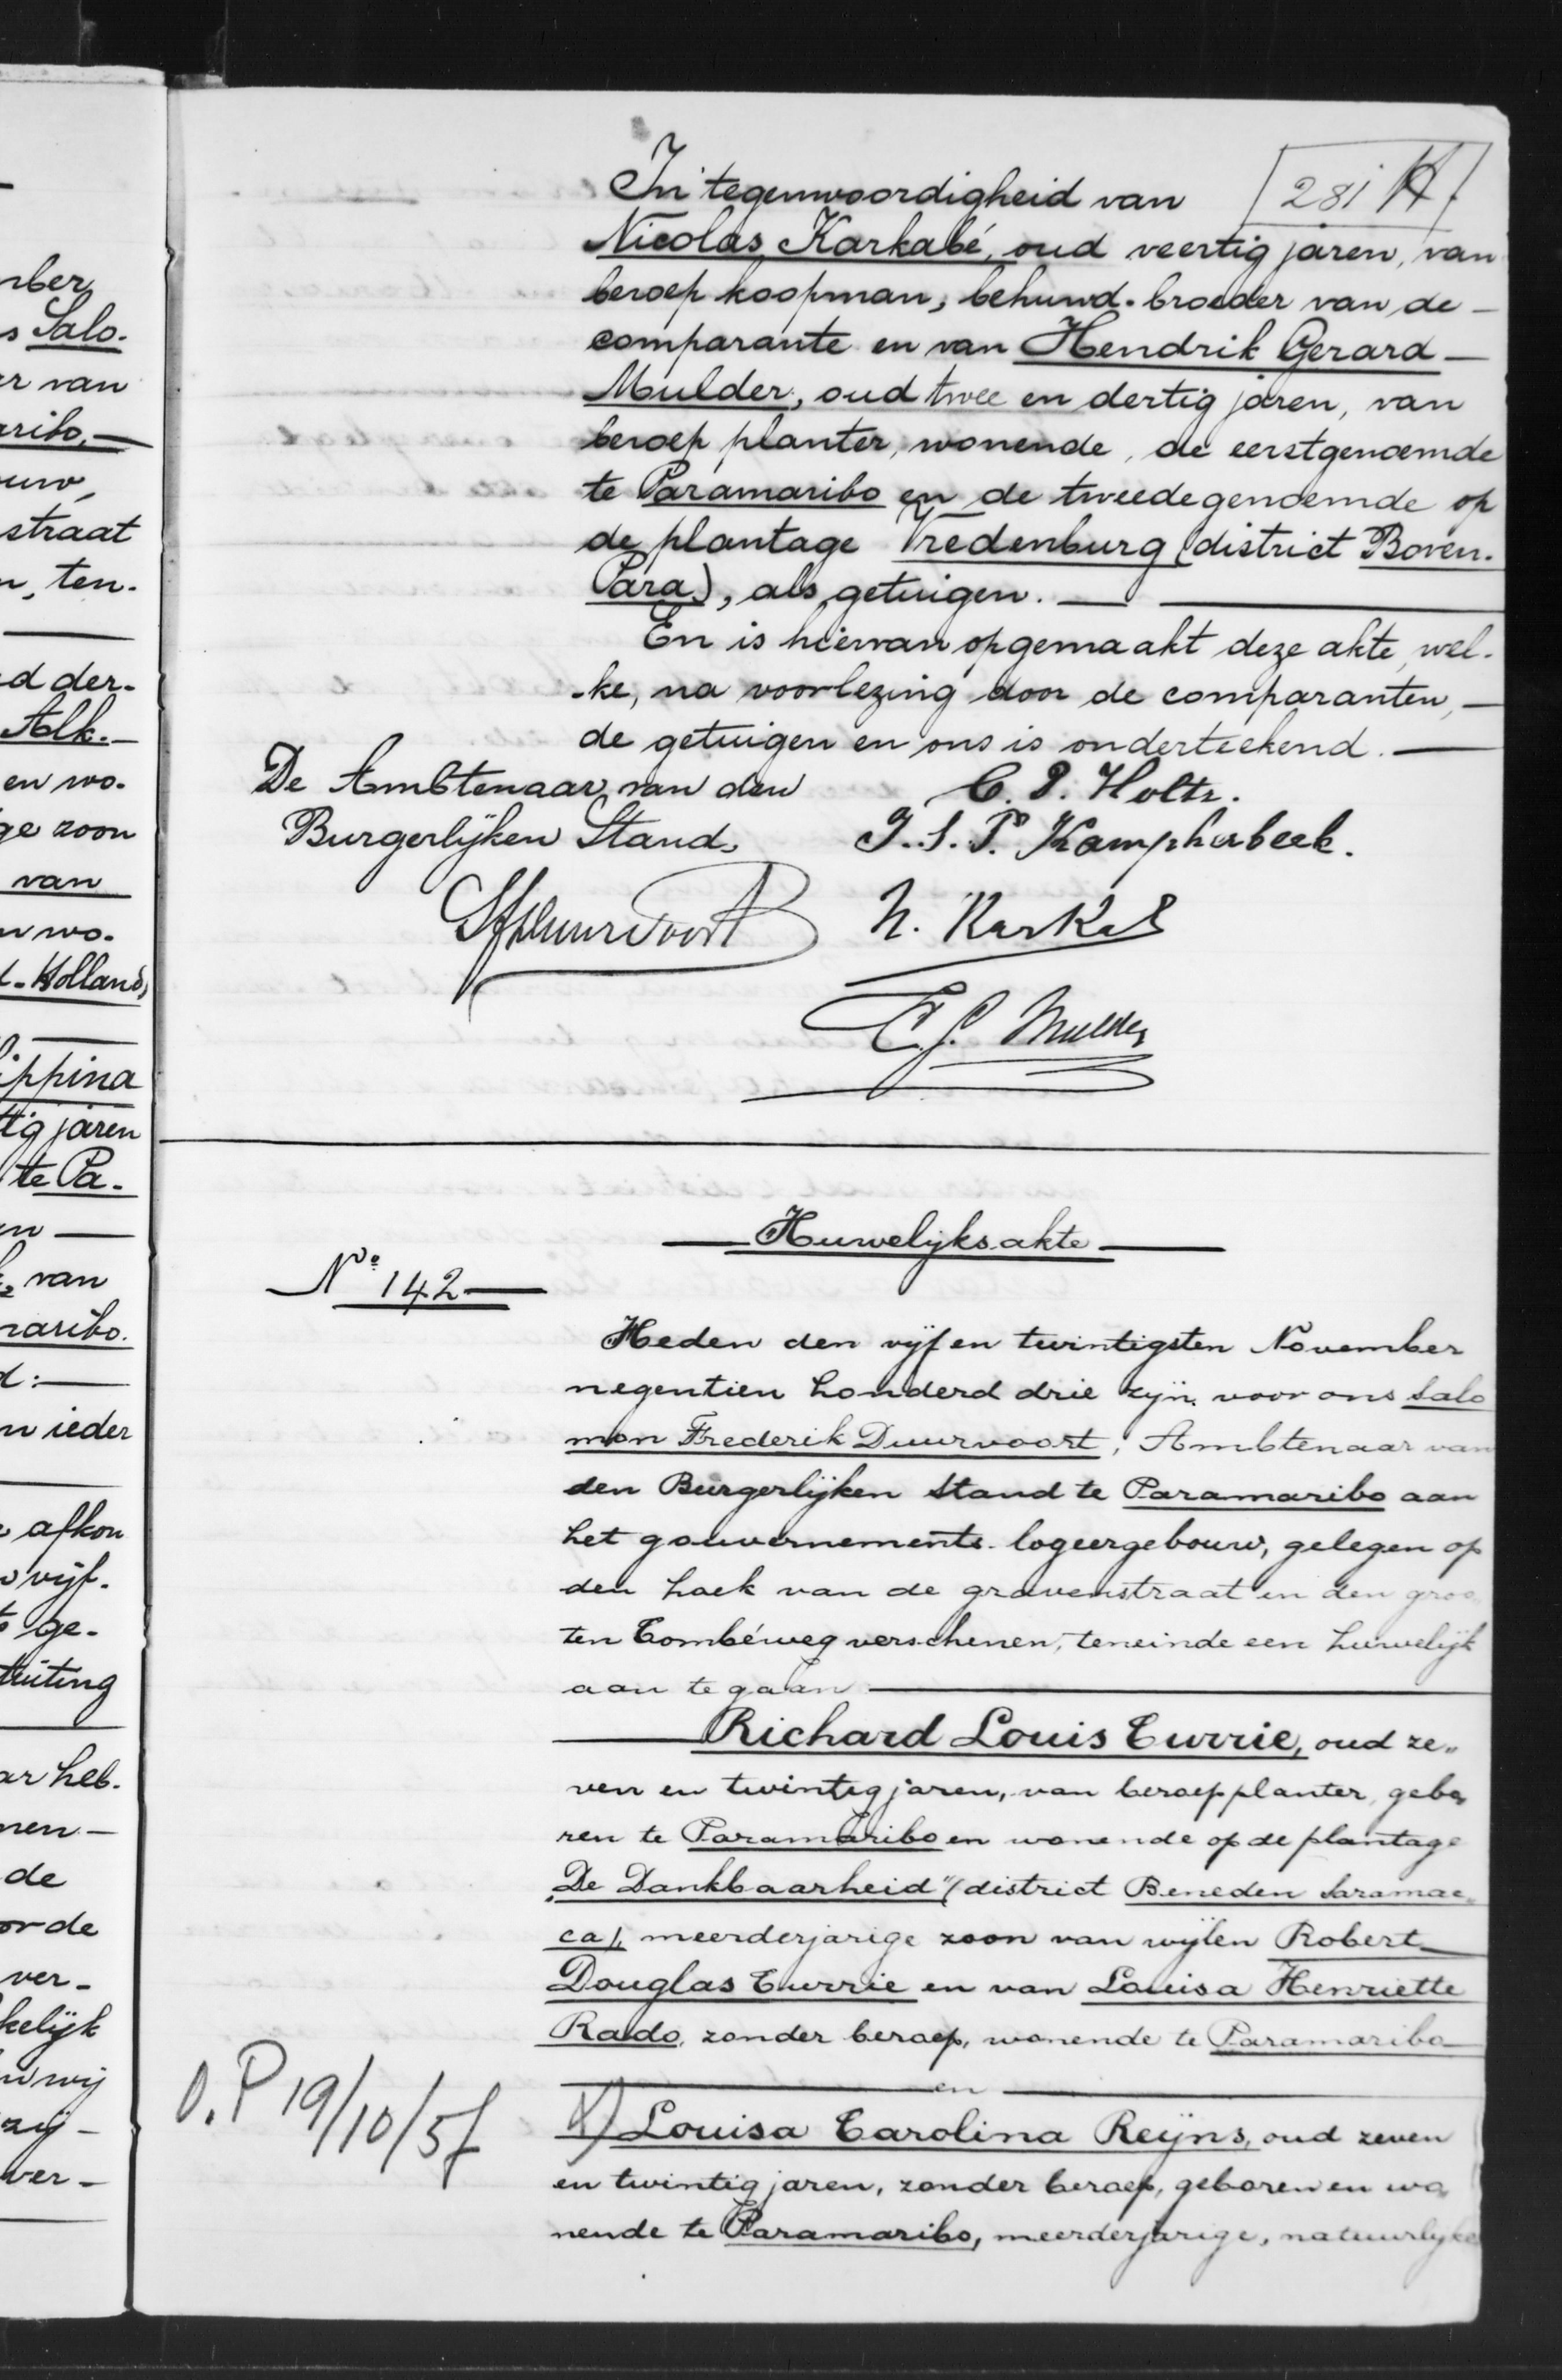 281
In tegenwoordigheid van
Nicolas Karkabé, oud veertig jaren, van
beroep koopman, behuwd-broeder van de
comparante en van Hendrik Gerard
Mulder, oud twee en dertig jaren, van
beroep planter, wonende, de eerstgenoemde
te Paramaribo en de tweedegenoemde op
de plantage Vredenburg (district Boven-
Para), als getuigen.
En is hiervan opgemaakt deze akte, wel-
ke, na voorlezing door de comparanten,
de getuigen en ons is onderteekend.
De Ambtenaar van den
Burgerlijken Stand,
C. P. Holtz.
J. S. P. Kampherbeek.
SF Duurvoort
N. Karkabé
H. G. Mulder
Huwelijks akte
No 142
Heden den vijf en twintigsten November
negentien honderd drie zijn voor ons Salo
mon Frederik Duurvoort, Ambtenaar van
den Burgerlijken Stand te Paramaribo aan
het gouvernements logeergebouw, gelegen op
den hoek van de gravenstraat en den groo
ten Combéweg verschenen, teneinde een huwelijk
aan te gaan
Richard Louis Currie, oud ze„
ven en twintig jaren, van beroep planter, gebo
ren te Paramaribo en wonende op de plantage
„De Dankbaarheid" (district Beneden Saramac„
ca), meerderjarige zoon van wijlen Robert
Douglas Currie en van Louisa Henriette
Rado, zonder beroep, wonende te Paramaribo
en
O.P 19/10/57
Louisa Carolina Reijns, oud zeven
en twintig jaren, zonder beroep, geboren en wo
nende te Paramaribo, meerderjarige, natuurlijke
nber
s Salo-
er van
aribo,
uw,
straat
n, ten-
d der-
Alk.
en wo-
ge zoon
van
n wo-
d-Holland,
ippina
tig jaren
te Pa-
en
van
naribo.
d:
n ieder
afkon
vijf-
ge-
tuiting
ar heb-
nen
de
or de
ver-
kelijk
n wij
zij
ver-